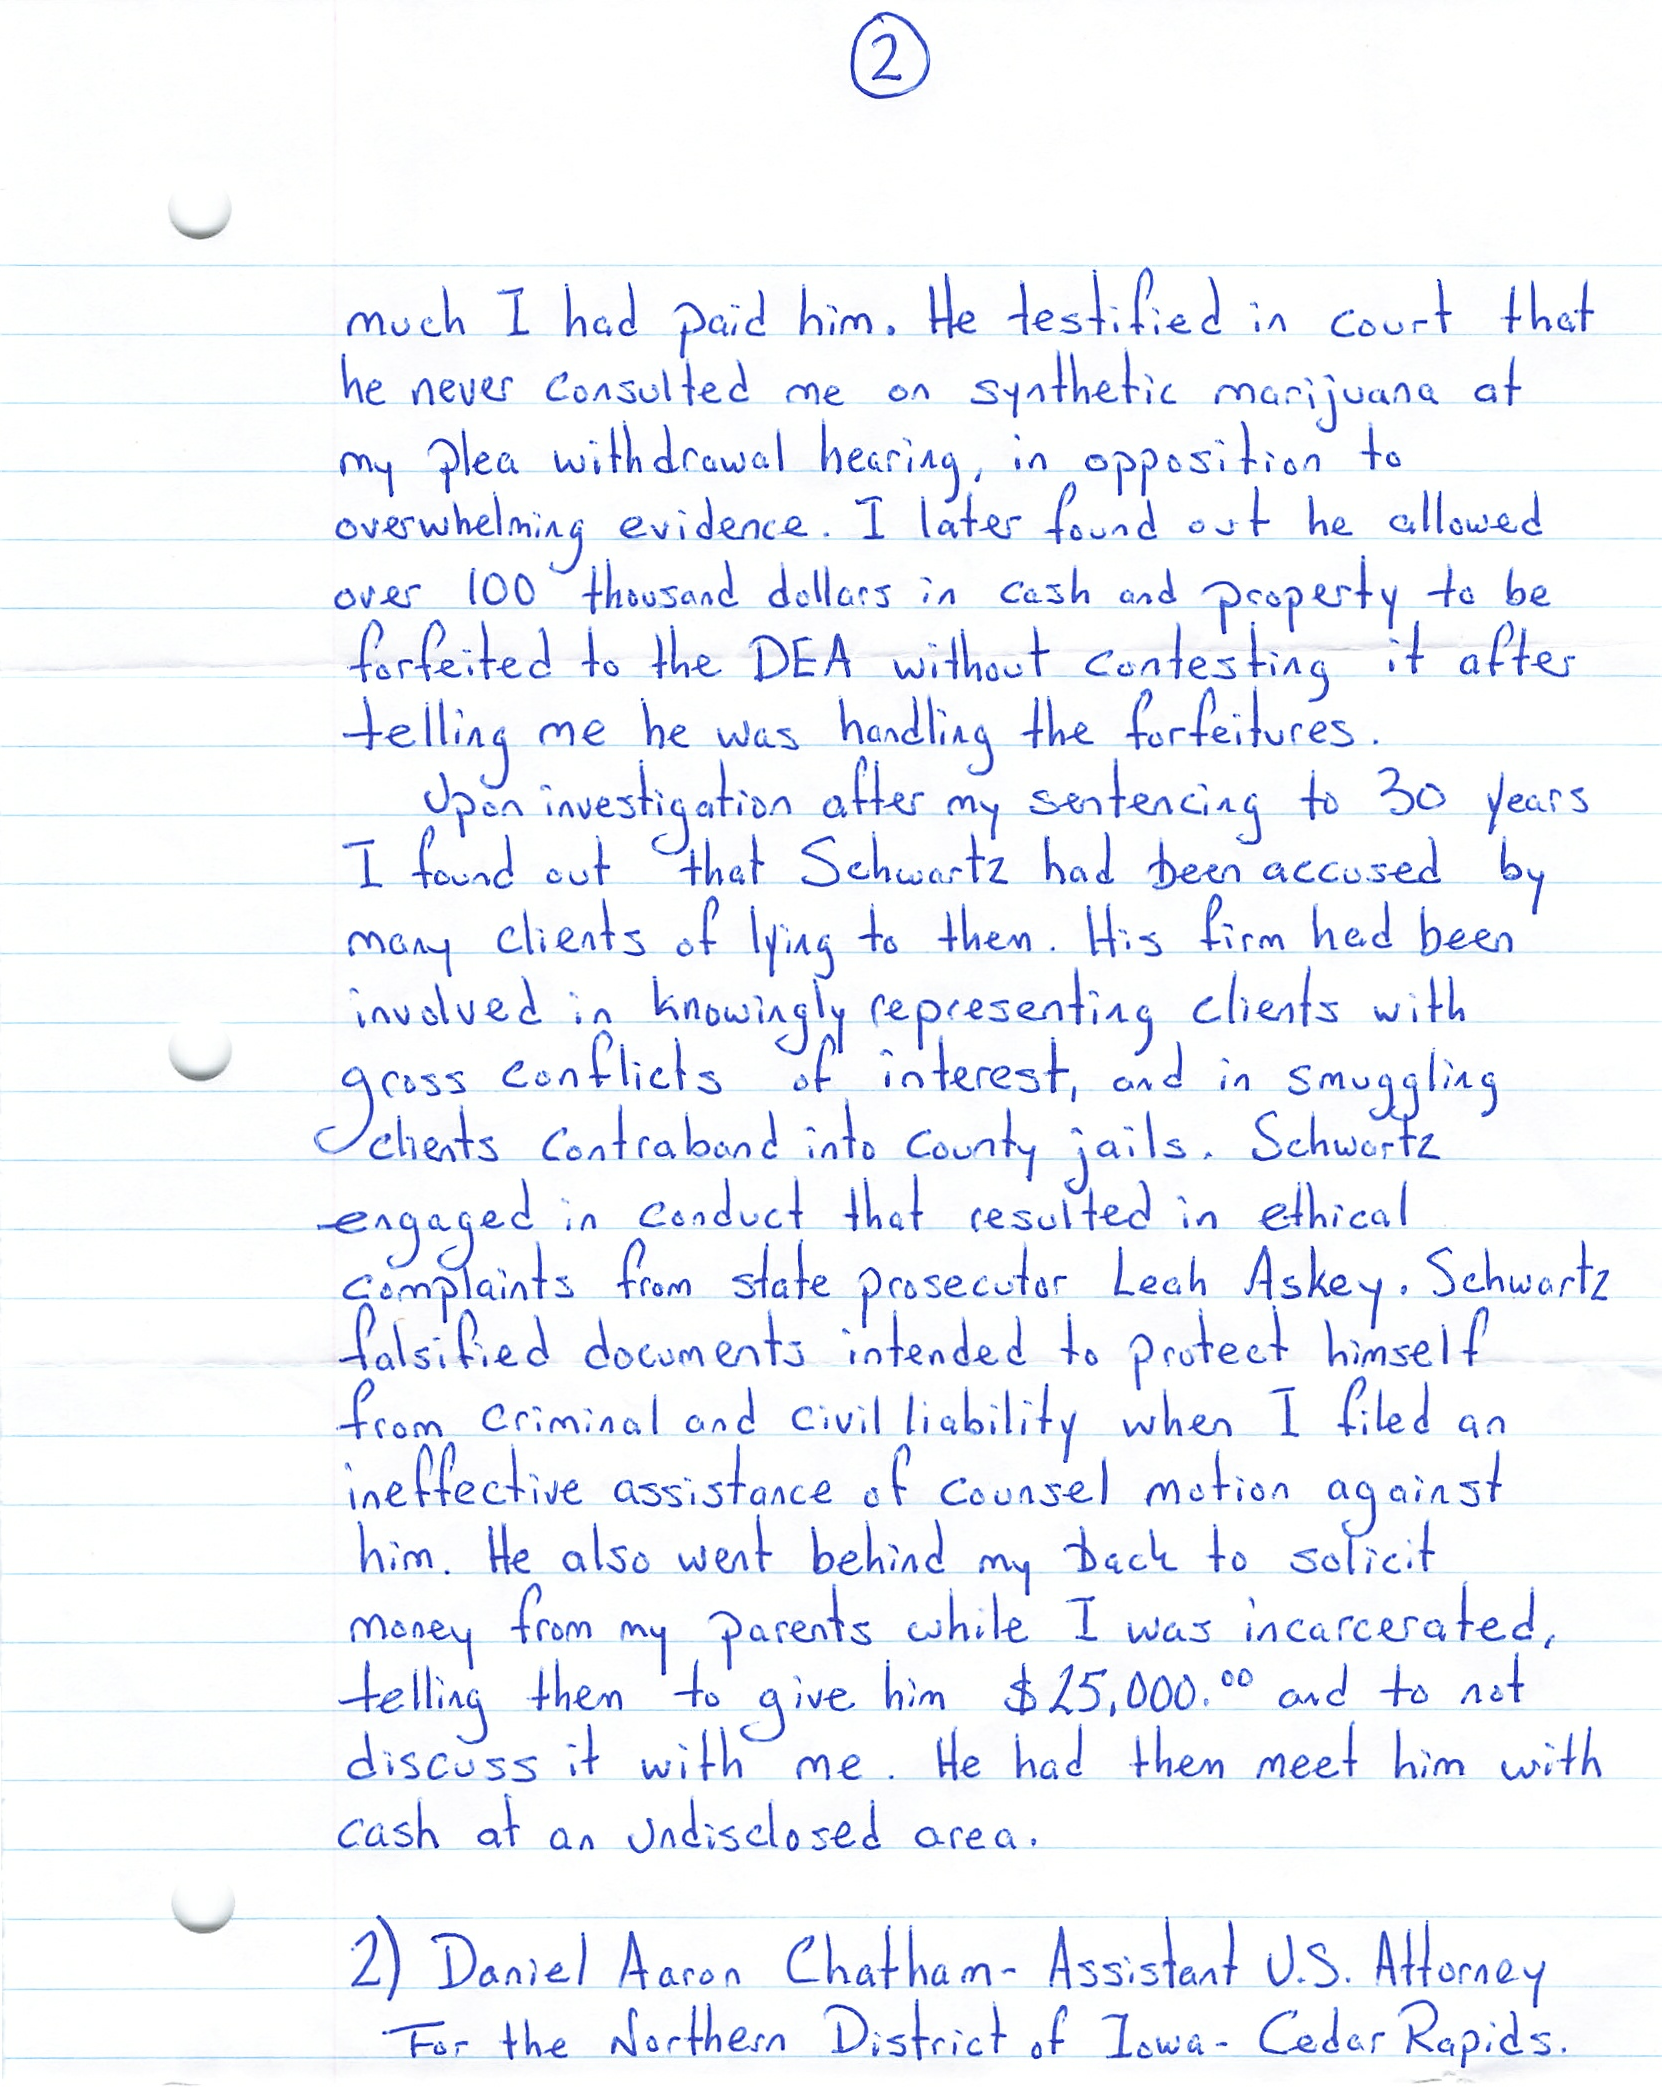 2
much I had paid him. He testified in court that
he never consulted me on synthetic marijuana at
my plea withdrawal hearing, in opposition to
overwhelming evidence. I later found out he allowed
over 100 thousand dollars in cash and property to be
forfeited to the DEA without contesting it after
telling me he was handling the forfeitures.
Upon investigation after my sentencing to 30 years
I found out that Schwartz had been accused by
many clients of lying to them. His firm had been
involved in knowingly representing clients with
gross conflicts of interest, and in smuggling
clients contraband into county jails. Schwartz
engaged in conduct that resulted in ethical
complaints from state prosecutor Leah Askey. Schwartz
falsified documents intended to protect himself
from criminal and civil liability when I filed an
ineffective assistance of counsel motion against
him. He also went behind my back to solicit
money from my parents while I was incarcerated,
telling them to give him $25,000.00 and to not
discuss it with me. He had them meet him with
cash at an undisclosed area.
2) Daniel Aaron Chatham- Assistant U.S. Attorney
For the Northern District of Iowa- Cedar Rapids.